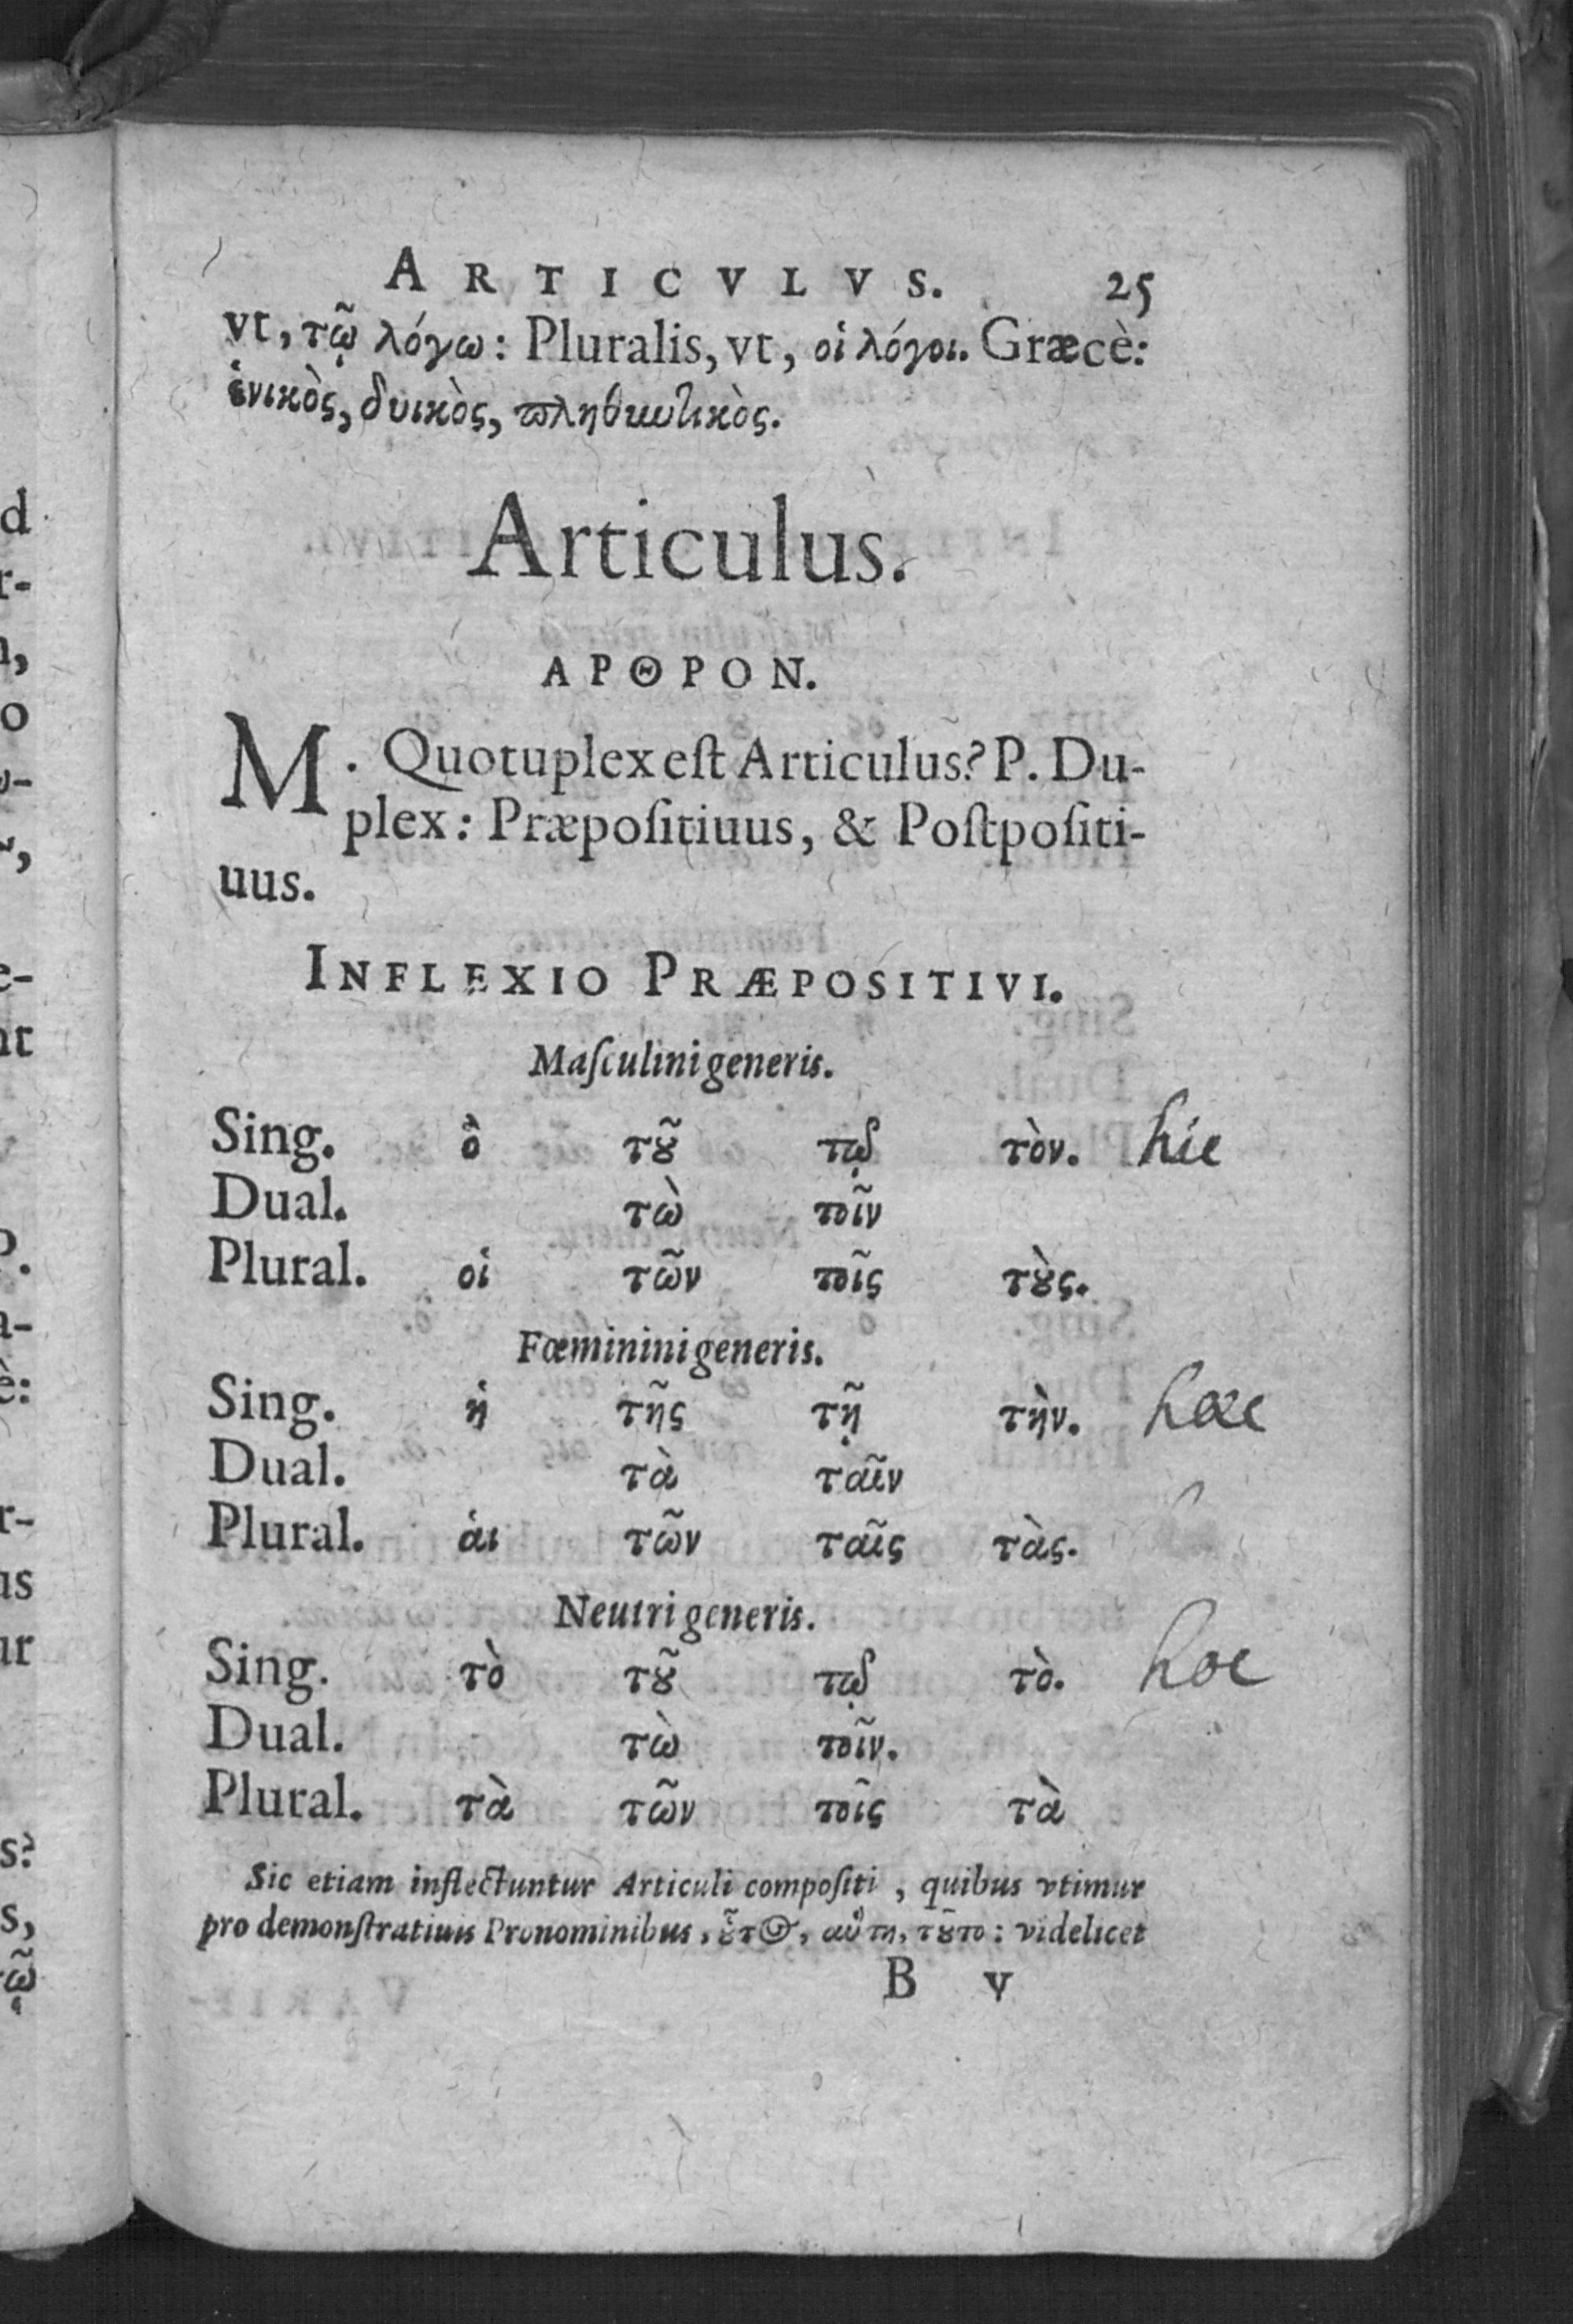 ARTICVLVS. 25
vt, τῷ λόγω: Pluralis, vt, οἱ λόγοι. Græcè:
ἑνικὸς, δυικὸς, πληθυντικὸς.
Articulus.
ΑΡΘΡΟΝ.
M. Quotuplex est Articulus? P. Du-
plex: Præpositiuus, & Postpositi-
uus.
INFLEXIO PRÆPOSITIVI.
Masculini generis.
Sing. ὁ τοῦ τῷ τὸν. hic
Dual. τὼ τοῖν
Plural. οἱ τῶν τοῖς τοὺς.
Fœminini generis.
Sing. ἡ τῆς τῇ τὴν. hæc
Dual. τὰ ταῖν
Plural. ἁι τῶν ταῖς τὰς.
Neutri generis.
Sing. τὸ τοῦ τῷ τὸ. hoc
Dual. τὼ τοῖν.
Plural. τὰ τῶν τοῖς τὰ
Sic etiam inflectuntur Articuli compositi, quibus vtimur
pro demonstratiuis Pronominibus, οὗτος, αὕτη, τοῦτο: videlicet
B v